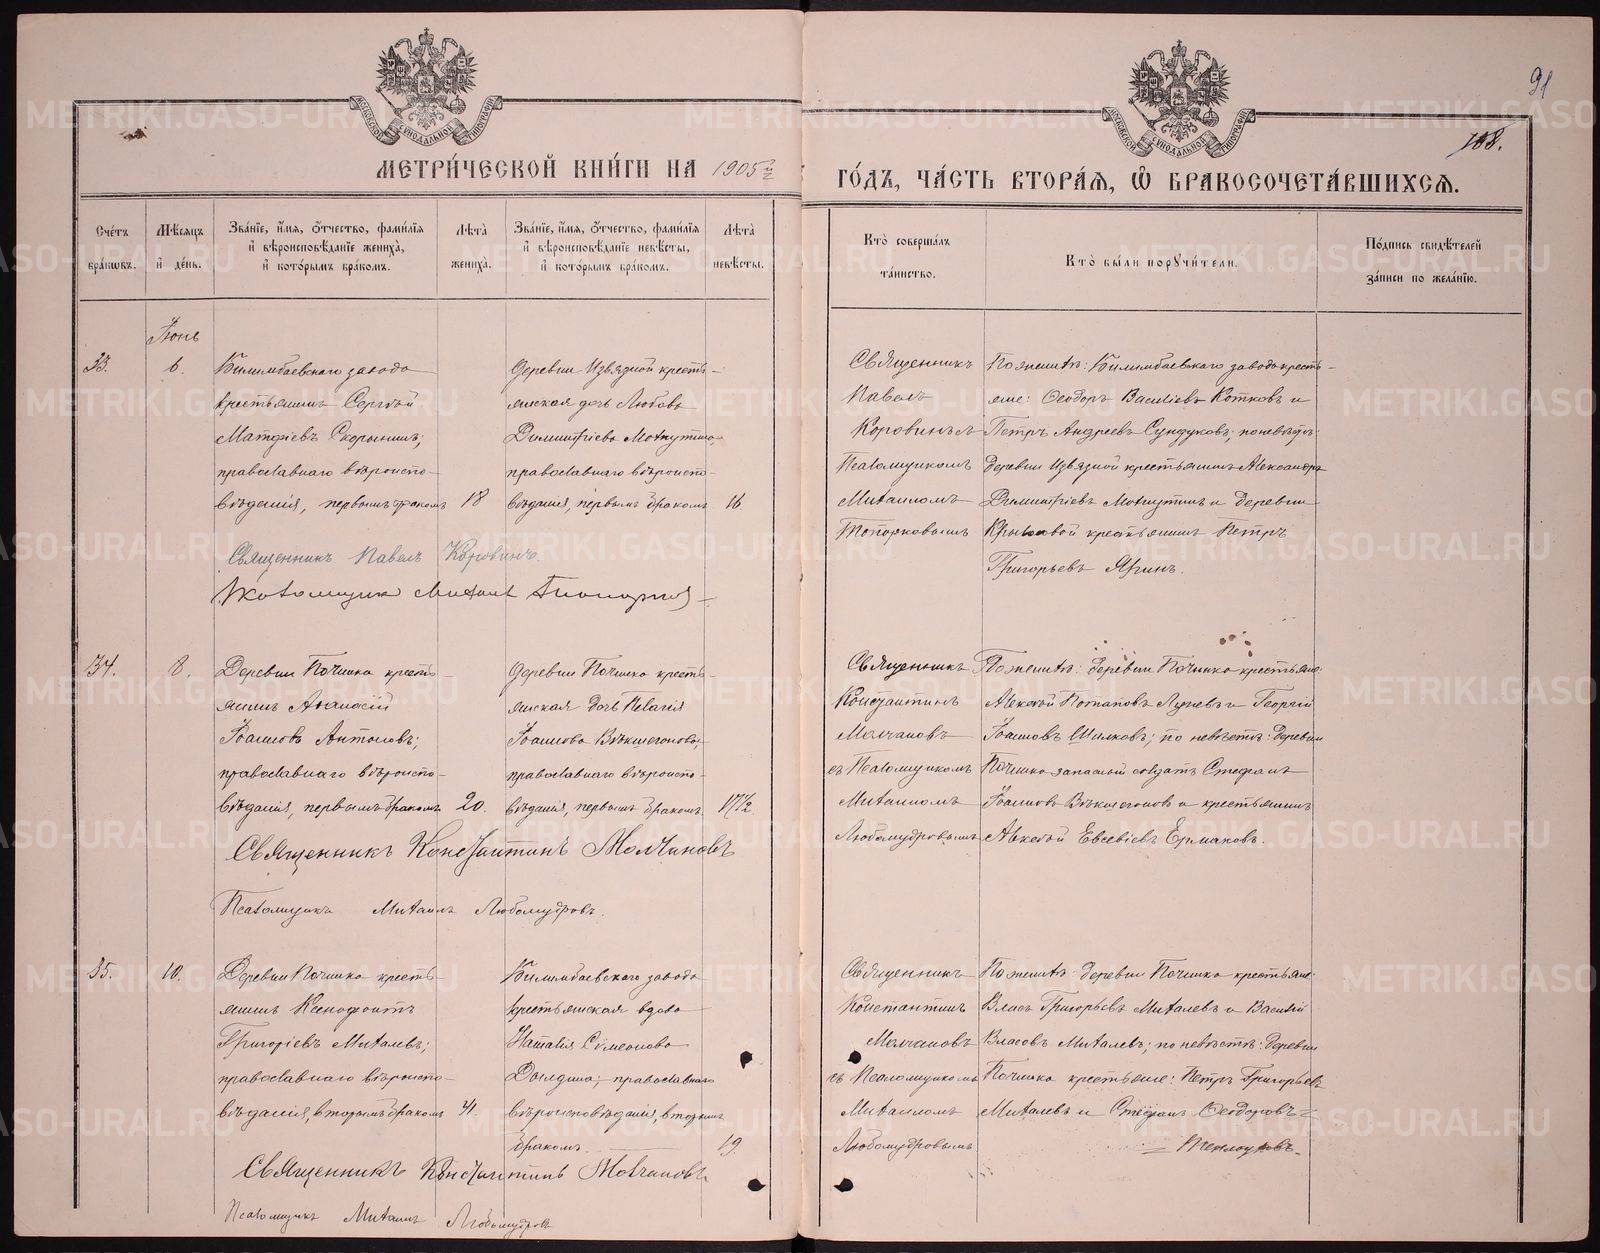 91
108.
МОСКОВСКОЙ СѴНОДАЛЬНОЙ ТИПОГРАФІИ
МОСКОВСКОЙ СѴНОДАЛЬНОЙ ТИПОГРАФІИ
МЕТРИ́ЧЕСКОЙ КНИ́ГИ НА 1905й
ГО́ДЪ, ЧА́СТЬ ВТОРА́Я, Ѡ БРАКОСОЧЕТА́ВШИХСЯ.
Сче́тъ бра́кѡвъ.
Мѣсяцъ и де́нь.
Зва́нїе, и́мя, ѻ́тчество, фами́лїя
и вѣроисповѣ́данїе жениха̀,
и кото́рымъ бра́комъ.
Лѣ́та жениха̀.
Зва́нїе, и́мя, ѻ́тчество, фами́лїя
и вѣроисповѣ́данїе невѣ́сты,
и кото́рымъ бра́комъ.
Лѣ́та невѣ́сты.
Кто̀ соверша́лъ
та́инство.
Кто̀ бы́ли порꙋчи́тели.
По́дпись свидѣ́телей
за́писи по жела́нїю.
Іюнь
33. 6.
Билимбаевскаго завода
крестьянинъ Сергѣй
Матѳіевъ Скорынинъ;
православнаго вѣроиспо-
вѣданія, первымъ бракомъ 18
деревни Извязной кресть-
янская дочь Любовь
Димитріева Мокнутина,
православнаго вѣроиспо-
вѣданія, первымъ бракомъ 16
Священникъ
Павелъ
Коровинъ съ
Псаломщикомъ
Михаиломъ
Топорковымъ
По женихѣ: Билимбаевскаго завода кресть-
яне: Ѳеодоръ Василіевъ Котковъ и
Петръ Андреевъ Сундуковъ; по невѣстѣ:
Деревни Извязной крестьянинъ Александръ
Димитріевъ Мокнутинъ и деревни
Крыловой крестьянинъ Петръ
Григорьевъ Ягинъ.
Священникъ Павелъ Коровинъ.
Псаломщикъ Михаилъ Топорковъ
34. 8.
Деревни Починка кресть-
янинъ Аѳанасій
Іоанновъ Антоновъ;
православнаго вѣроиспо-
вѣданія, первымъ бракомъ 20.
деревни Починка кресть-
янская дочь Пелагія
Іоаннова Вѣкшегонова;
православнаго вѣроиспо-
вѣданія, первымъ бракомъ. 17½
Священникъ
Константинъ
Молчановъ
съ Псаломщикомъ
Михаиломъ
Любомудровымъ
По женихѣ: деревни Починка крестьяне:
Алексѣй Потаповъ Луневъ и Георгій
Іоанновъ Шилковъ; по невѣстѣ: Деревни
Починка запасный солдатъ Стефанъ
Іоанновъ Вѣкшегоновъ и крестьянинъ
Алексѣй Евсевіевъ Ермаковъ.
Священникъ Константинъ Молчановъ
Псаломщикъ Михаилъ Любомудровъ.
35. 10.
Деревни Починка кресть-
янинъ Ксенофонтъ
Григоріевъ Михалевъ;
православнаго вѣроиспо-
вѣданія, вторымъ бракомъ 31.
Билимбаевскаго завода
крестьянская вдова
Наталія Сѵмеонова
Дылдина; православнаго
вѣроисповѣданія, вторымъ
бракомъ 19.
Священникъ
Константинъ
Молчановъ
съ Псаломщикомъ
Михаиломъ
Любомудровымъ
По женихѣ: деревни Починка крестьяне:
Власъ Григорьевъ Михалевъ и Василій
Власовъ Михалевъ; по невѣстѣ: деревни
Починка крестьяне: Петръ Григорьевъ
Михалевъ и Стефанъ Ѳеодоровъ
Теплоуховъ.
Священникъ Константинъ Молчановъ
Псаломщикъ Михаилъ Любомудровъ